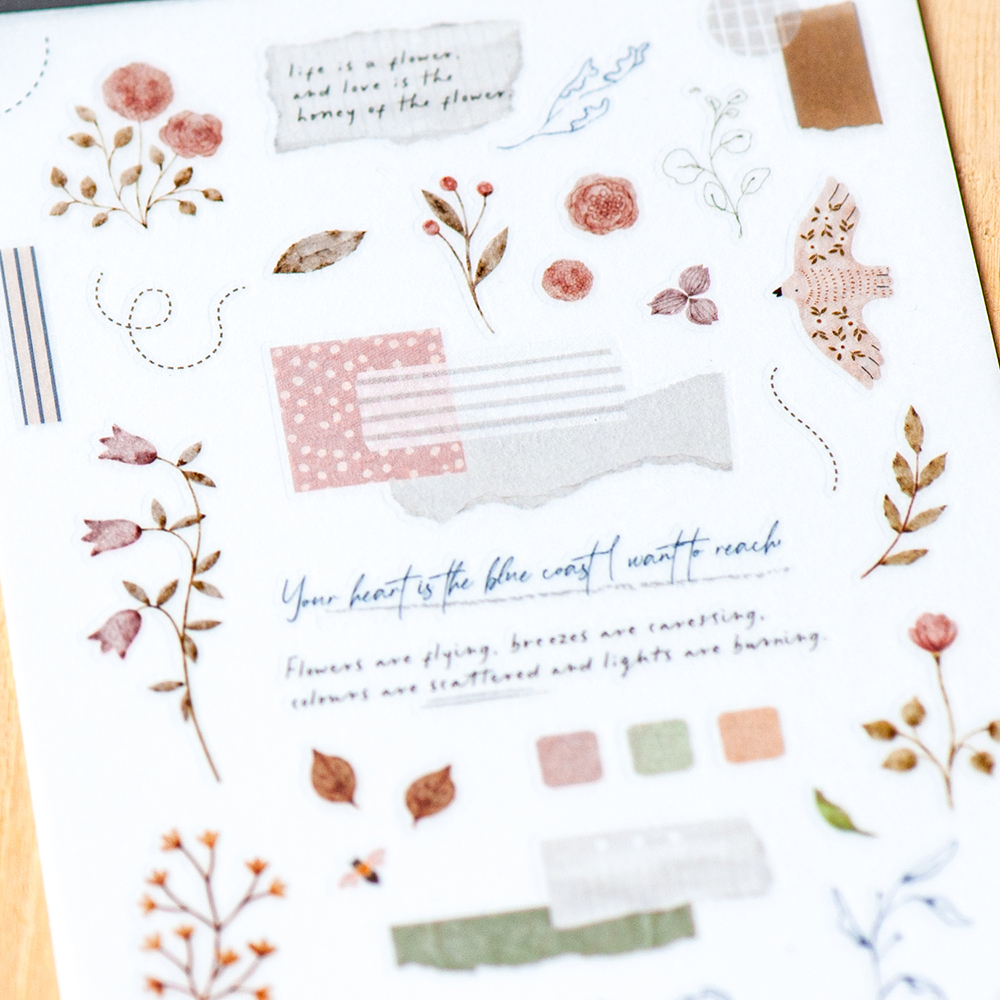 life is a flower.
and love is the
honey of the flower.
Your heart is the blue coast I want to reach.
Flowers are flying, breezes are caressing,
colours are scattered and lights are burning.